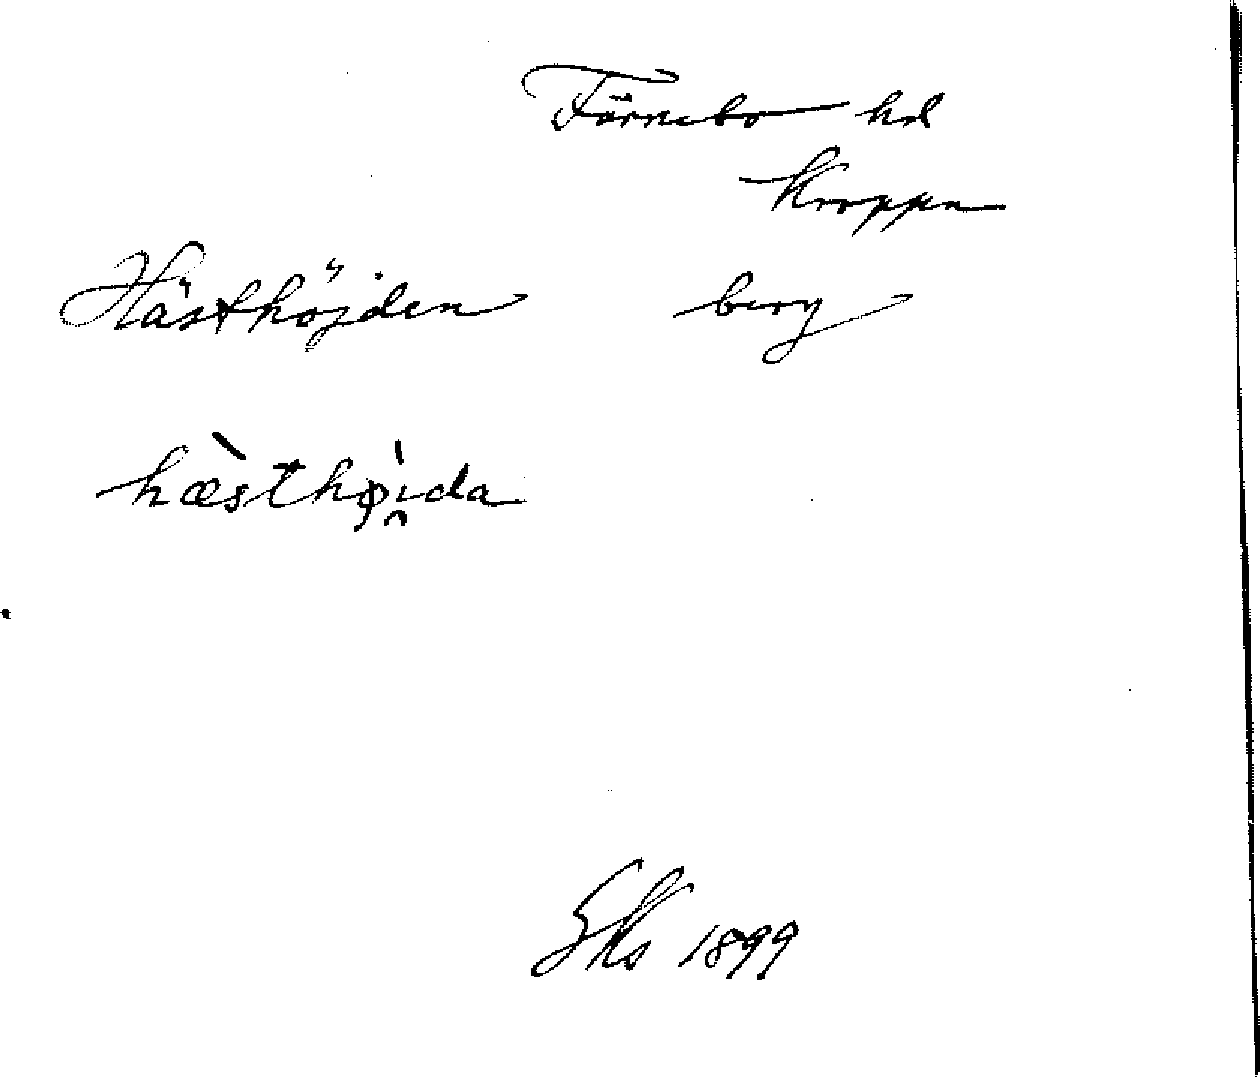 Färnebo hd
Kroppa
Hästhöjden berg
hæ̀sthøi̯da
Gks 1899